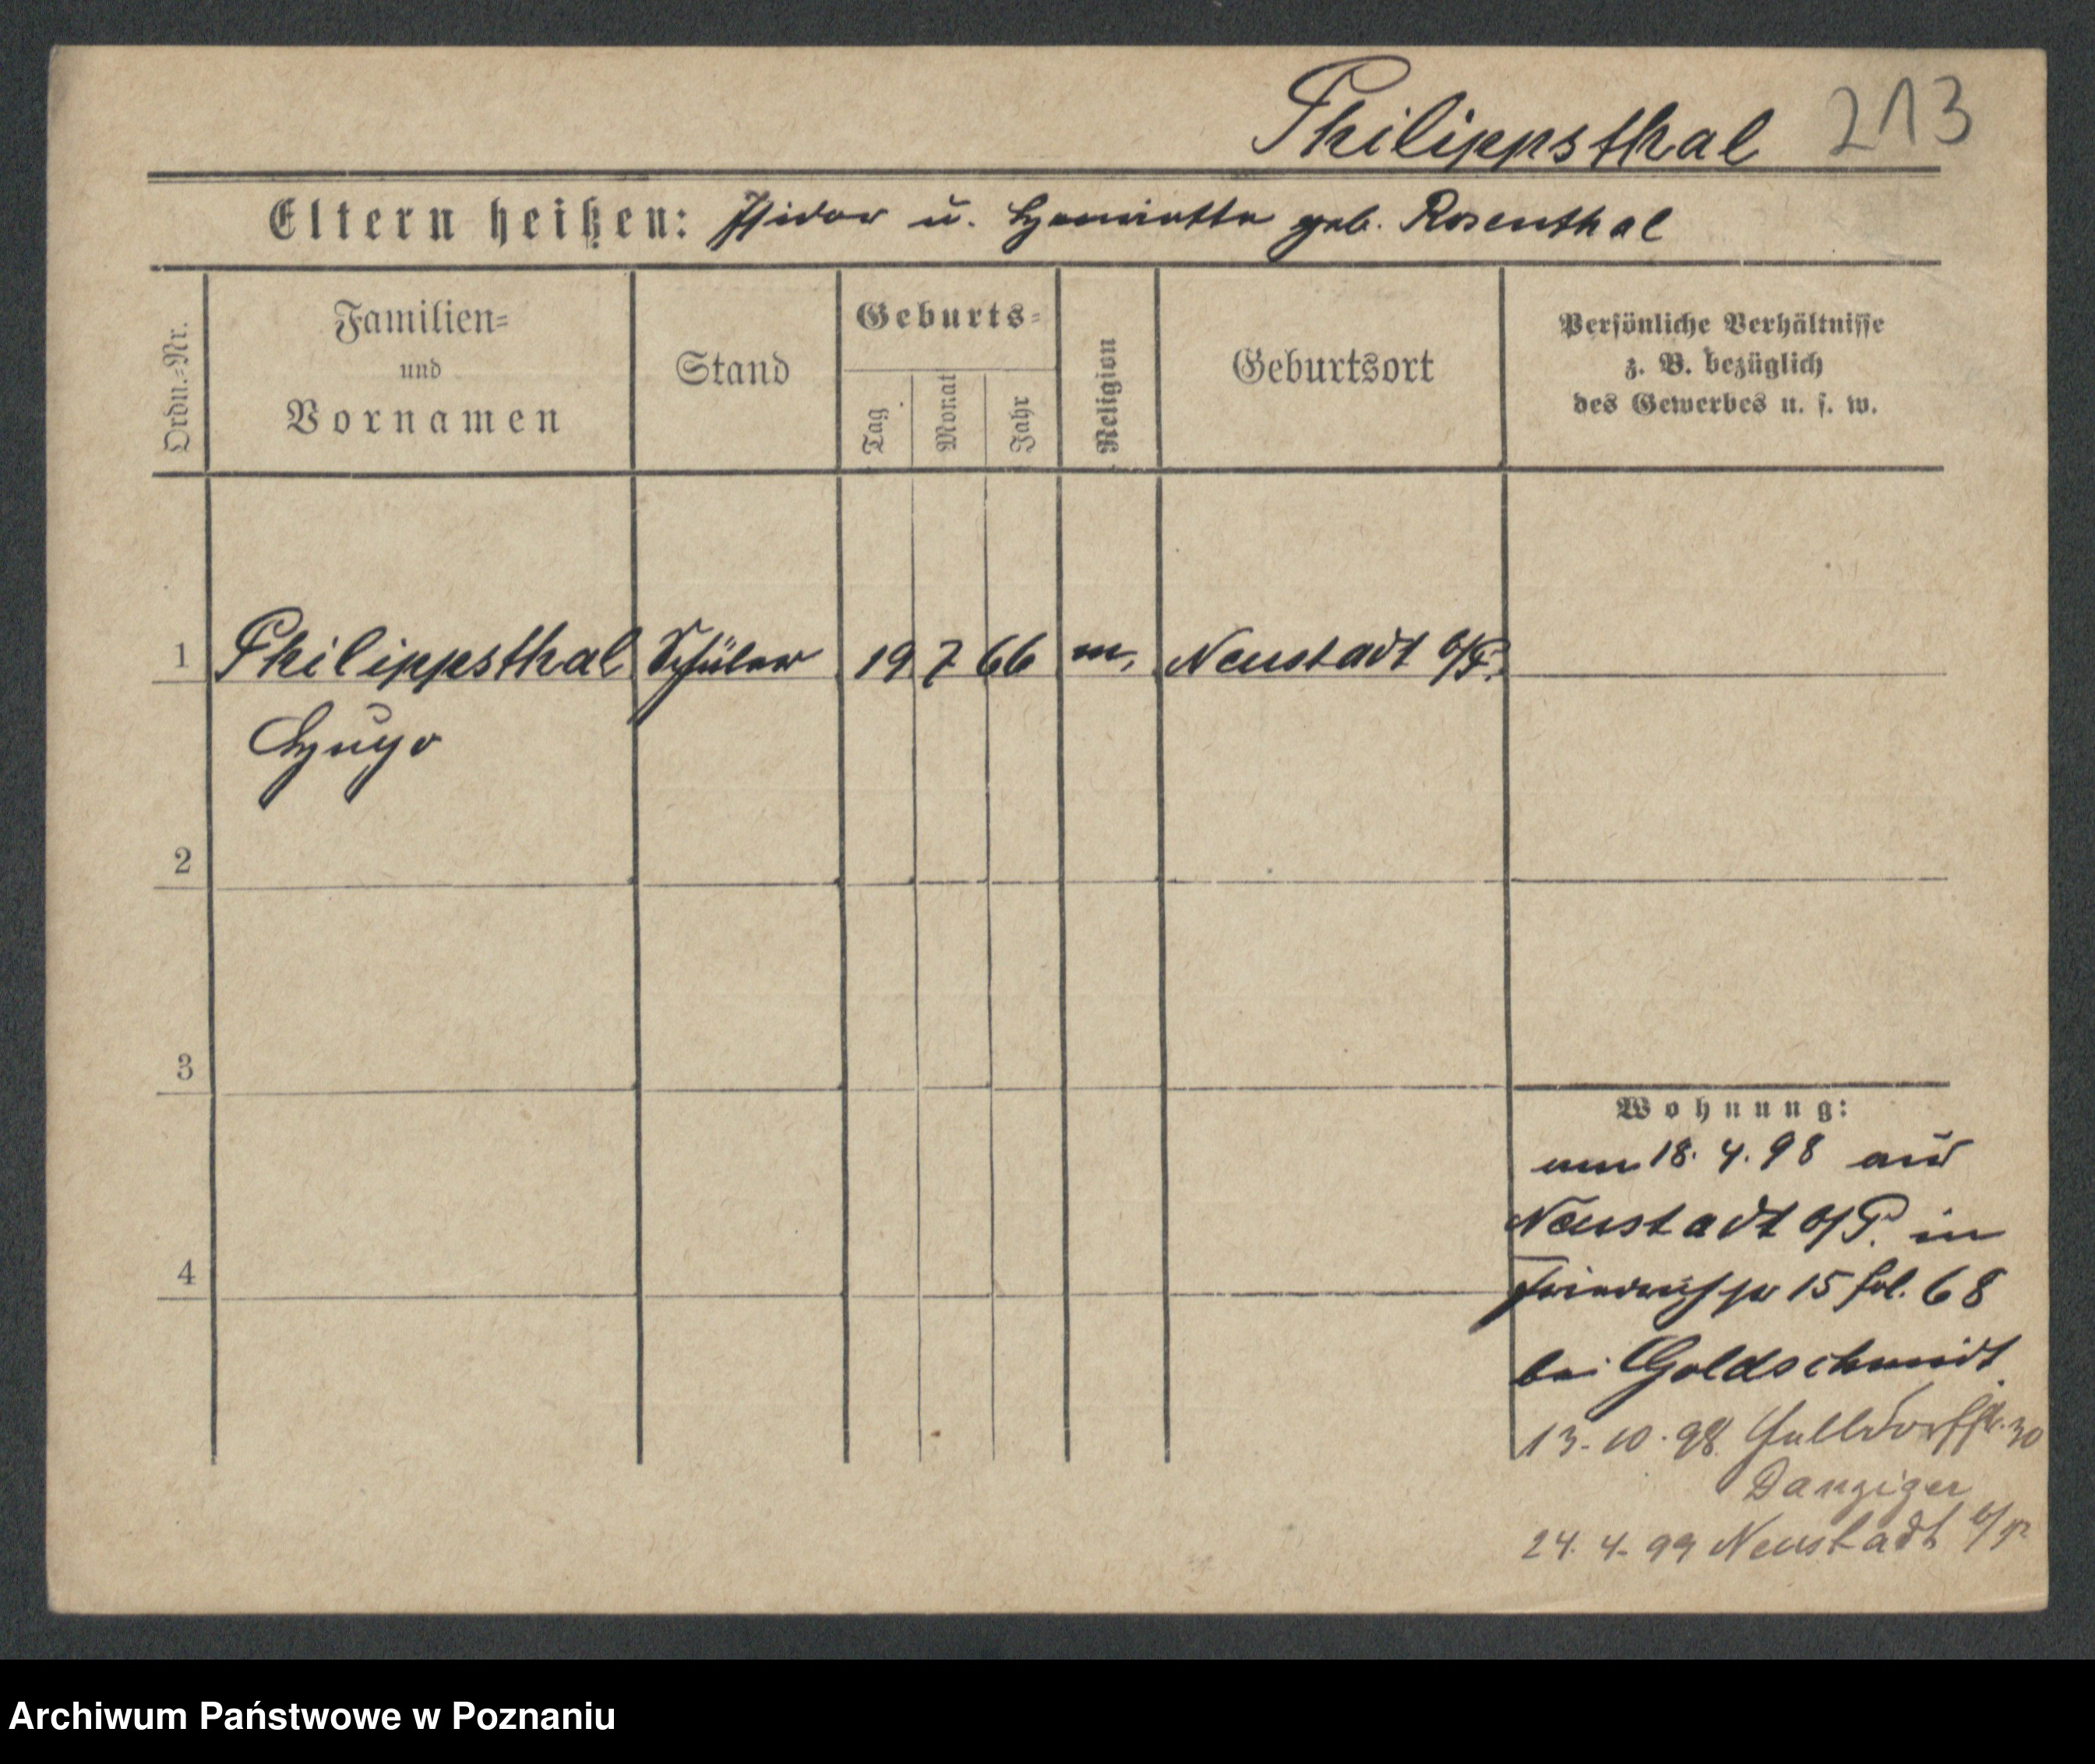 Philippsthal 213
Eltern heißen: Isidor u. Henriette geb. Rosenthal
Ordn.=Nr.
Familien=
und
Vornamen
Stand
Geburts=
Tag
Monat
Jahr
Religion
Geburtsort
Persönliche Verhältnisse
z. B. bezüglich
des Gewerbes u. s. w.
1 Philippsthal Schüler 19 7 66 m. Neustadt b/P.
Hugo
2
3
4
Wohnung:
am 18. 4. 98 aus
Neustadt b/P. in
Friedrichstr 15 fol. 68
bei Goldschmidt
13. 10. 98 30
Danziger
24. 4. 99 Neustadt b/P